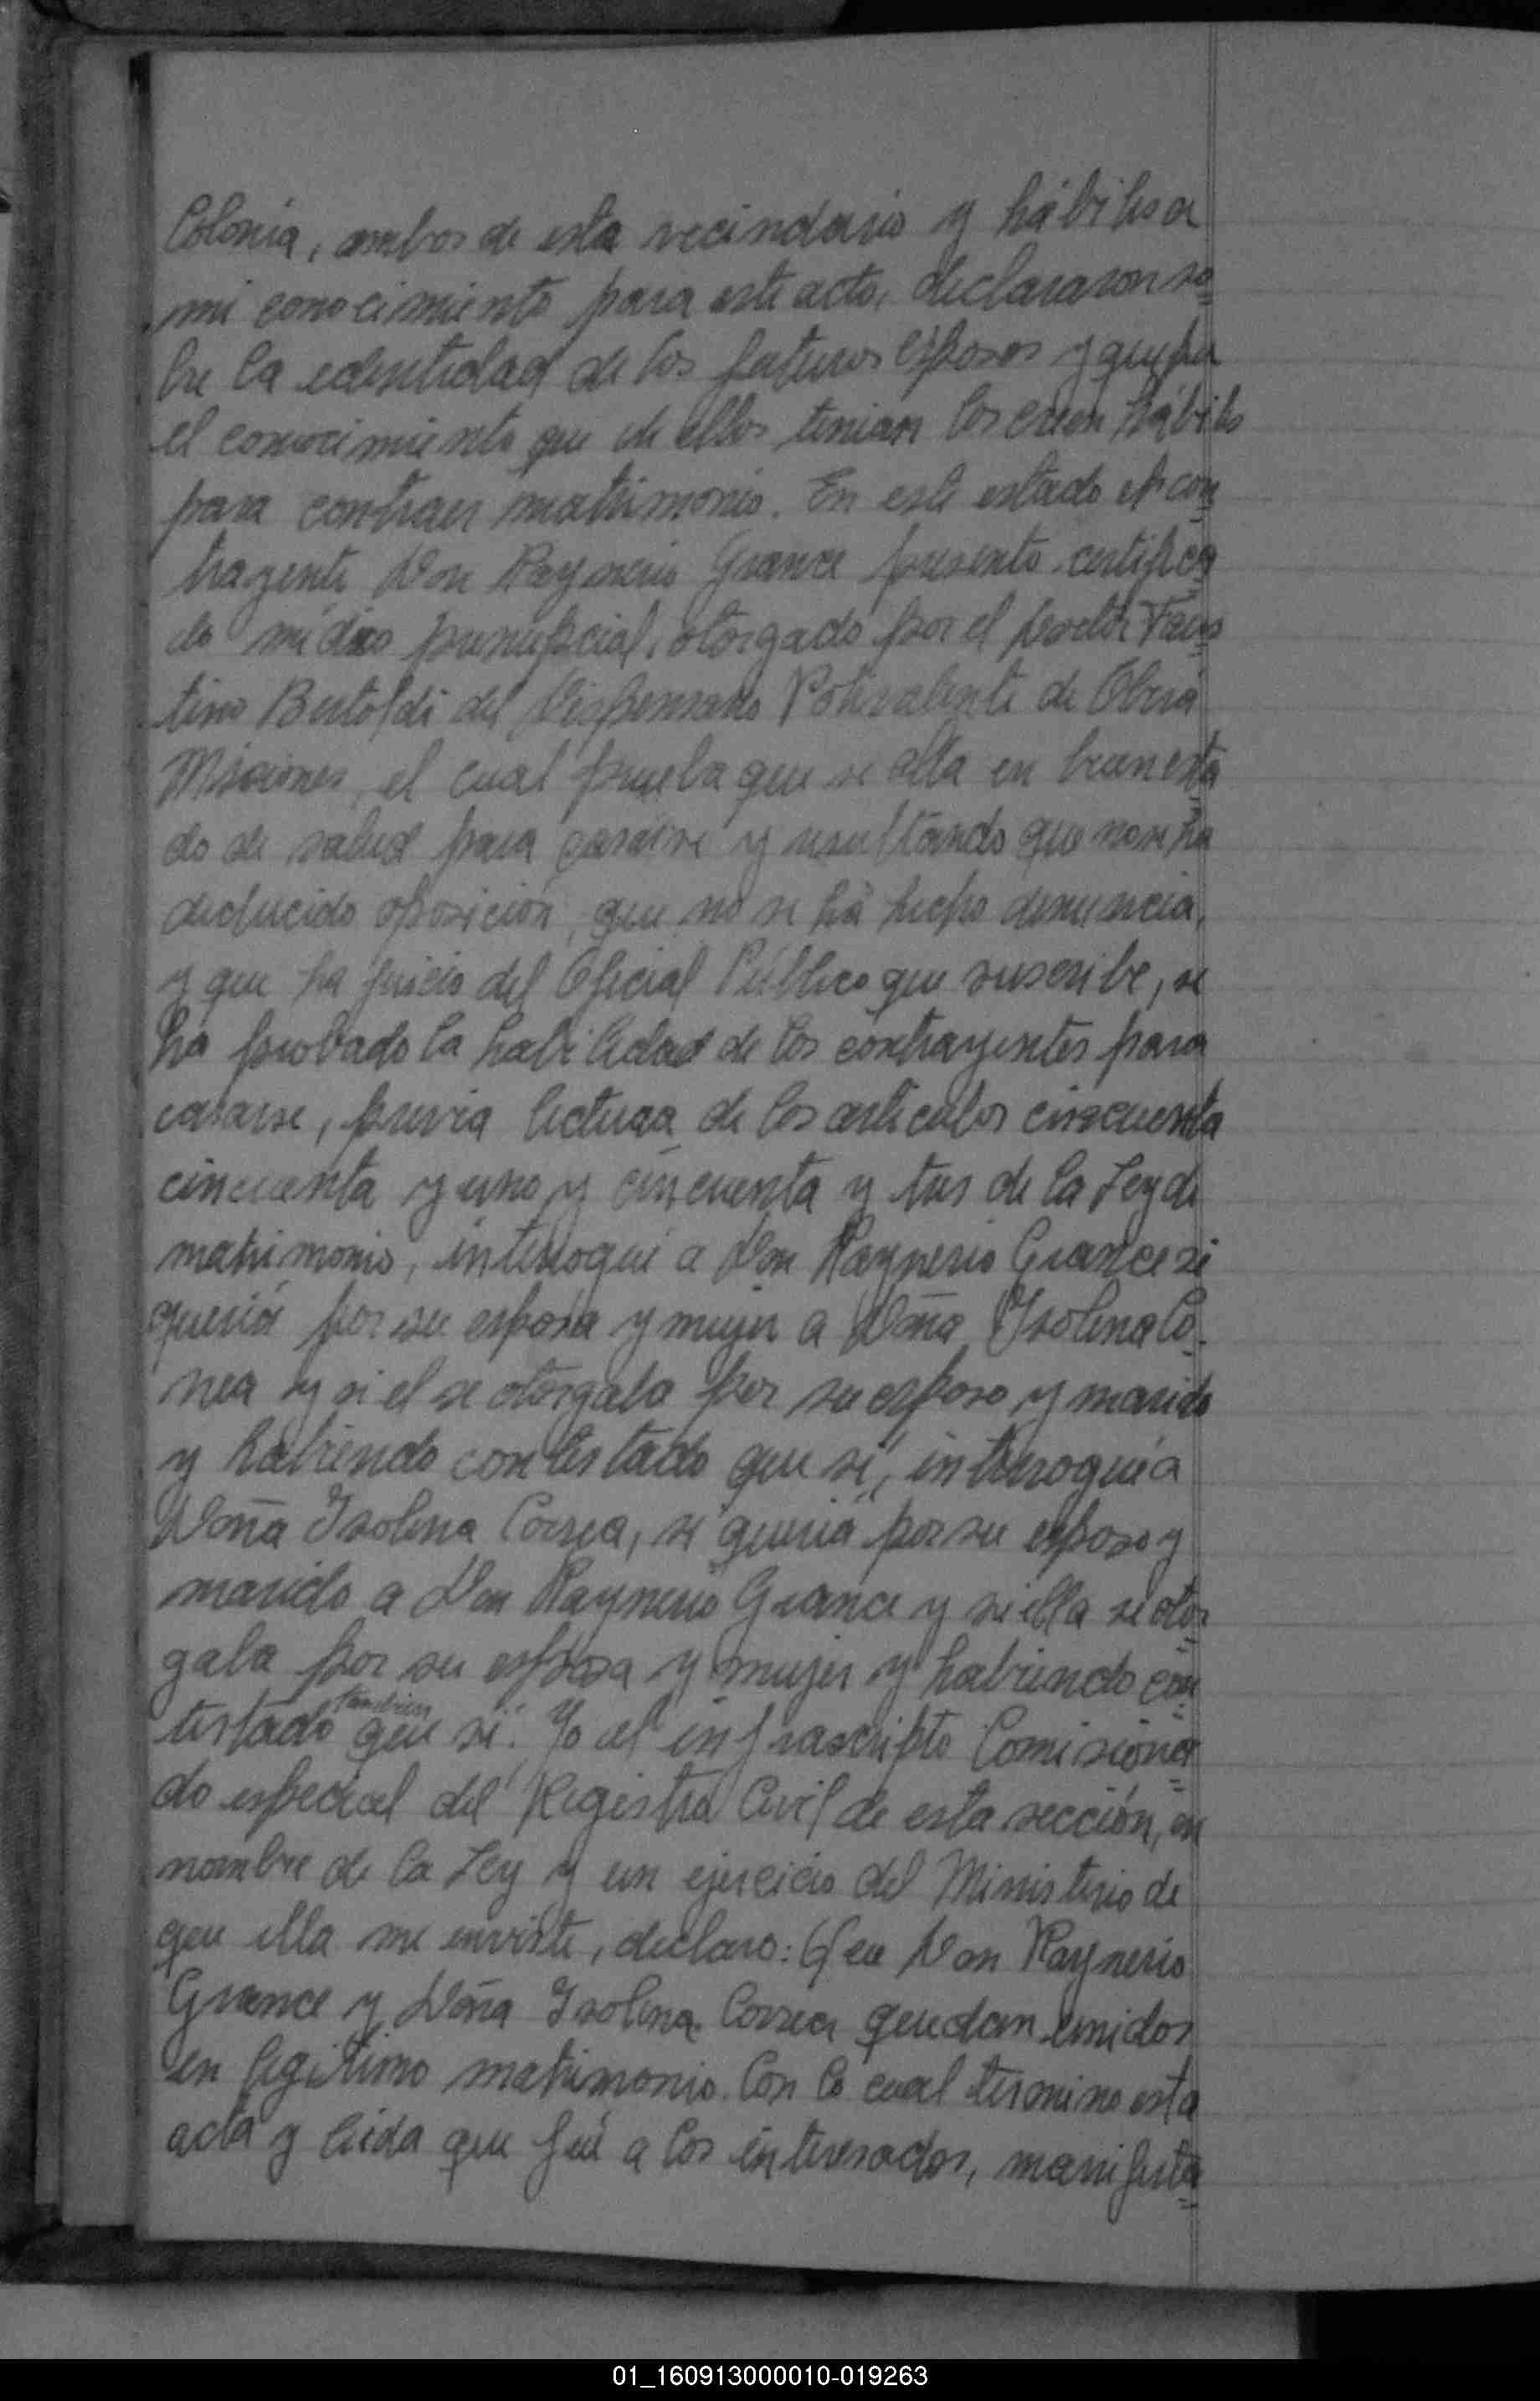 Colonia, ambos de esta vecindario y hábiles a
mi conocimiento para este acto, declararon so=
bre la identidad de los futuros esposos y que por
el conocimiento que de ellos tenian los creen hábiles
para contraer matrimonio. En este estado el con
trayente Don Raynerio Grance presento certifica
do médico prenupcial, otorgado por el Doctor Faus=
tino Bertoldi del Dispensario Polivalente de Oberá
Misiones, el cual prueba que se alla en buen esta=
do de salud para casarse y resultando que no se ha
deducido oposición, que no se há hecho denuncia,
y que ha juicio del Oficial Público que suscribe, se
ha probado la habilidad de los contrayentes para
casarse, previa lectura de los articulos cincuenta
cincuenta y uno y cincuenta y tres de la Ley de
matrimonio, interrogué a Don Raynerio Grance si
queriá por su esposa y mujer a Doña Isolina Co=
rrea y si el se otorgaba por su esposo y marido
y habiendo contestado que sí, interrogué a
Doña Isolina Correa, si queriá por su esposo y
marido a Don Raynerio Grance y si ella se otor=
gaba por su esposa y mujer y habiendo con=
testado también que sí. Yo el infrascripto Comisiona=
do especial del Registro Civil de esta sección, en
nombre de la Ley y en ejercicio del Ministerio de
que ella me enviste, declaro: Que Don Raynerio
Grance y Doña Isolina Correa quedan unidos
en legítimo matrimonio. Con lo cual termino esta
acta y leida que fué a los interesados, manifesta=
01_160913000010-019263